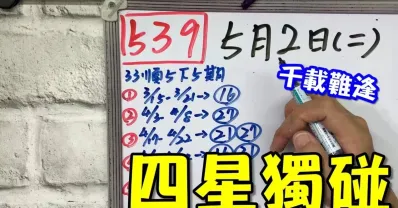 539 5月2日(二)
千載難逢
33順5下5期
① 3/15-3/21→⑯
② 4/3-4/8→㉗
③ 4/17-4/22→㉑㉗
四星獨碰